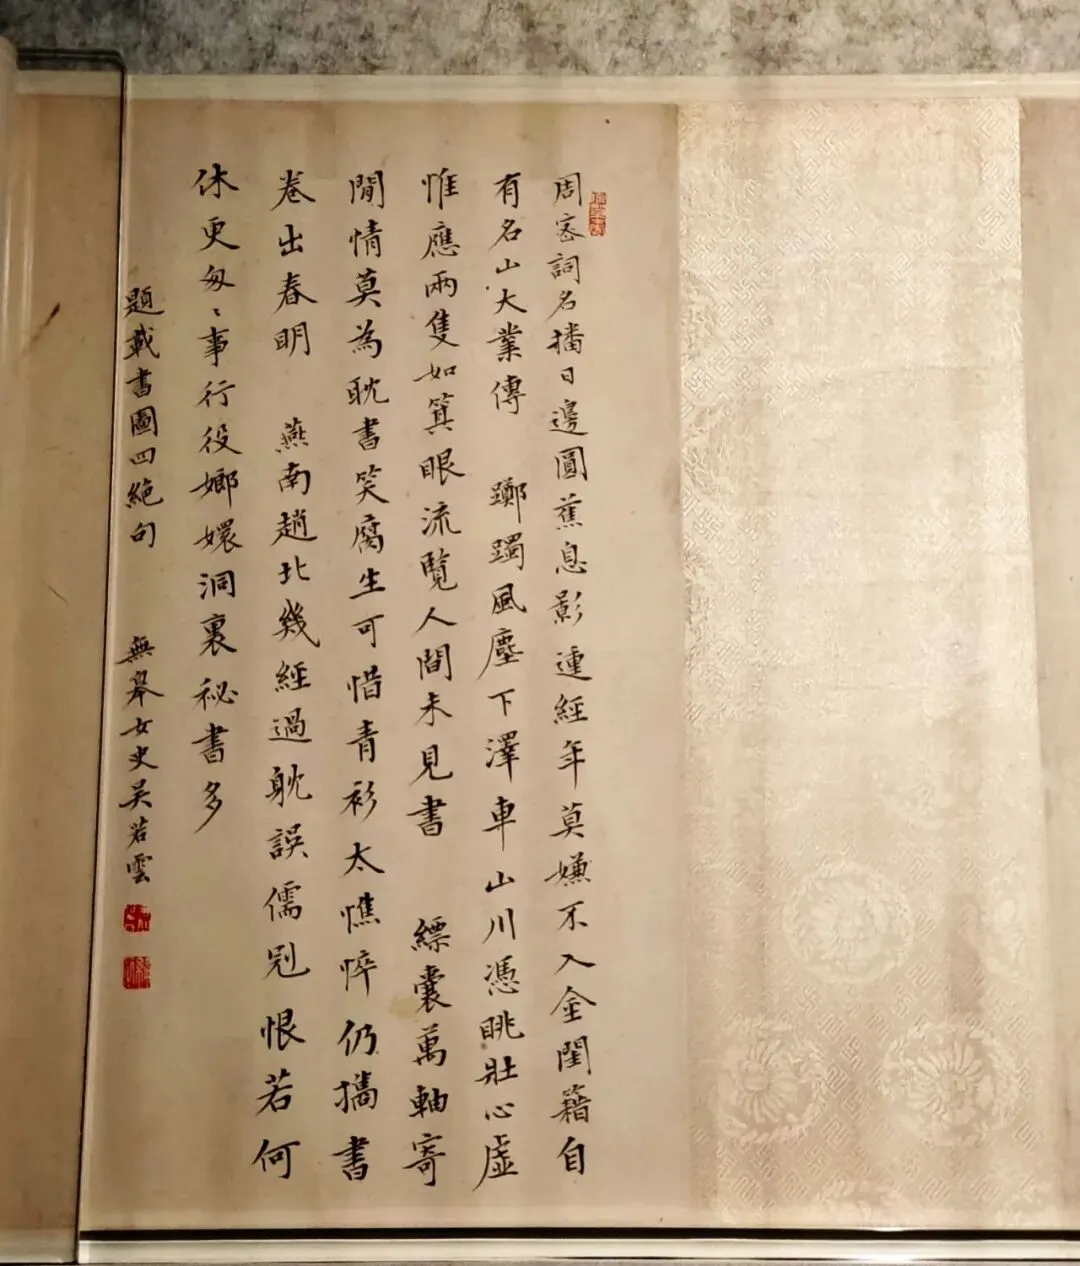 周客詞名播日邊圓蕉息影連經年莫嫌不入金閨籍自
有名山大業傳 躑躅風塵下澤車山川憑眺壯心虛
惟應兩隻如箕眼流覽人間未見書 縹囊萬軸寄
閒情莫為耽書笑腐生可惜青衫太憔悴仍攜書
卷出春明 燕南趙北幾經過躭誤儒冠恨若何
休更匆〻事行役嫏嬛洞裏秘書多
題載書圖四絕句 無皋女史吴若雲